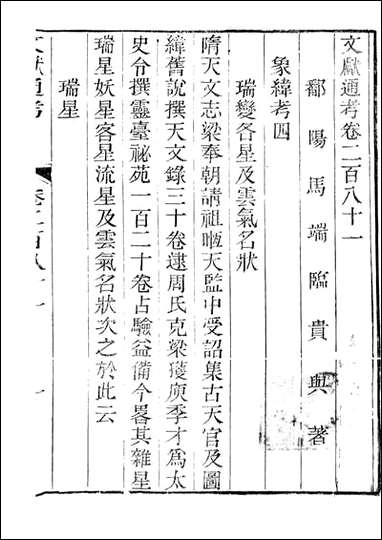 文獻通考卷二百八十一
鄱陽馬端臨貴與著
象緯考四
瑞變各星及雲氣名狀
隋天文志梁奉朝請祖暅天監中受詔集古天官及圖
緯舊說撰天文錄三十卷逮周氏克梁獲庾季才爲太
史令撰靈臺祕苑一百二十卷占驗益備今畧其雜星
瑞星妖星客星流星及雲氣名狀次之於此云
瑞星
文獻通考
卷二百八十一
一